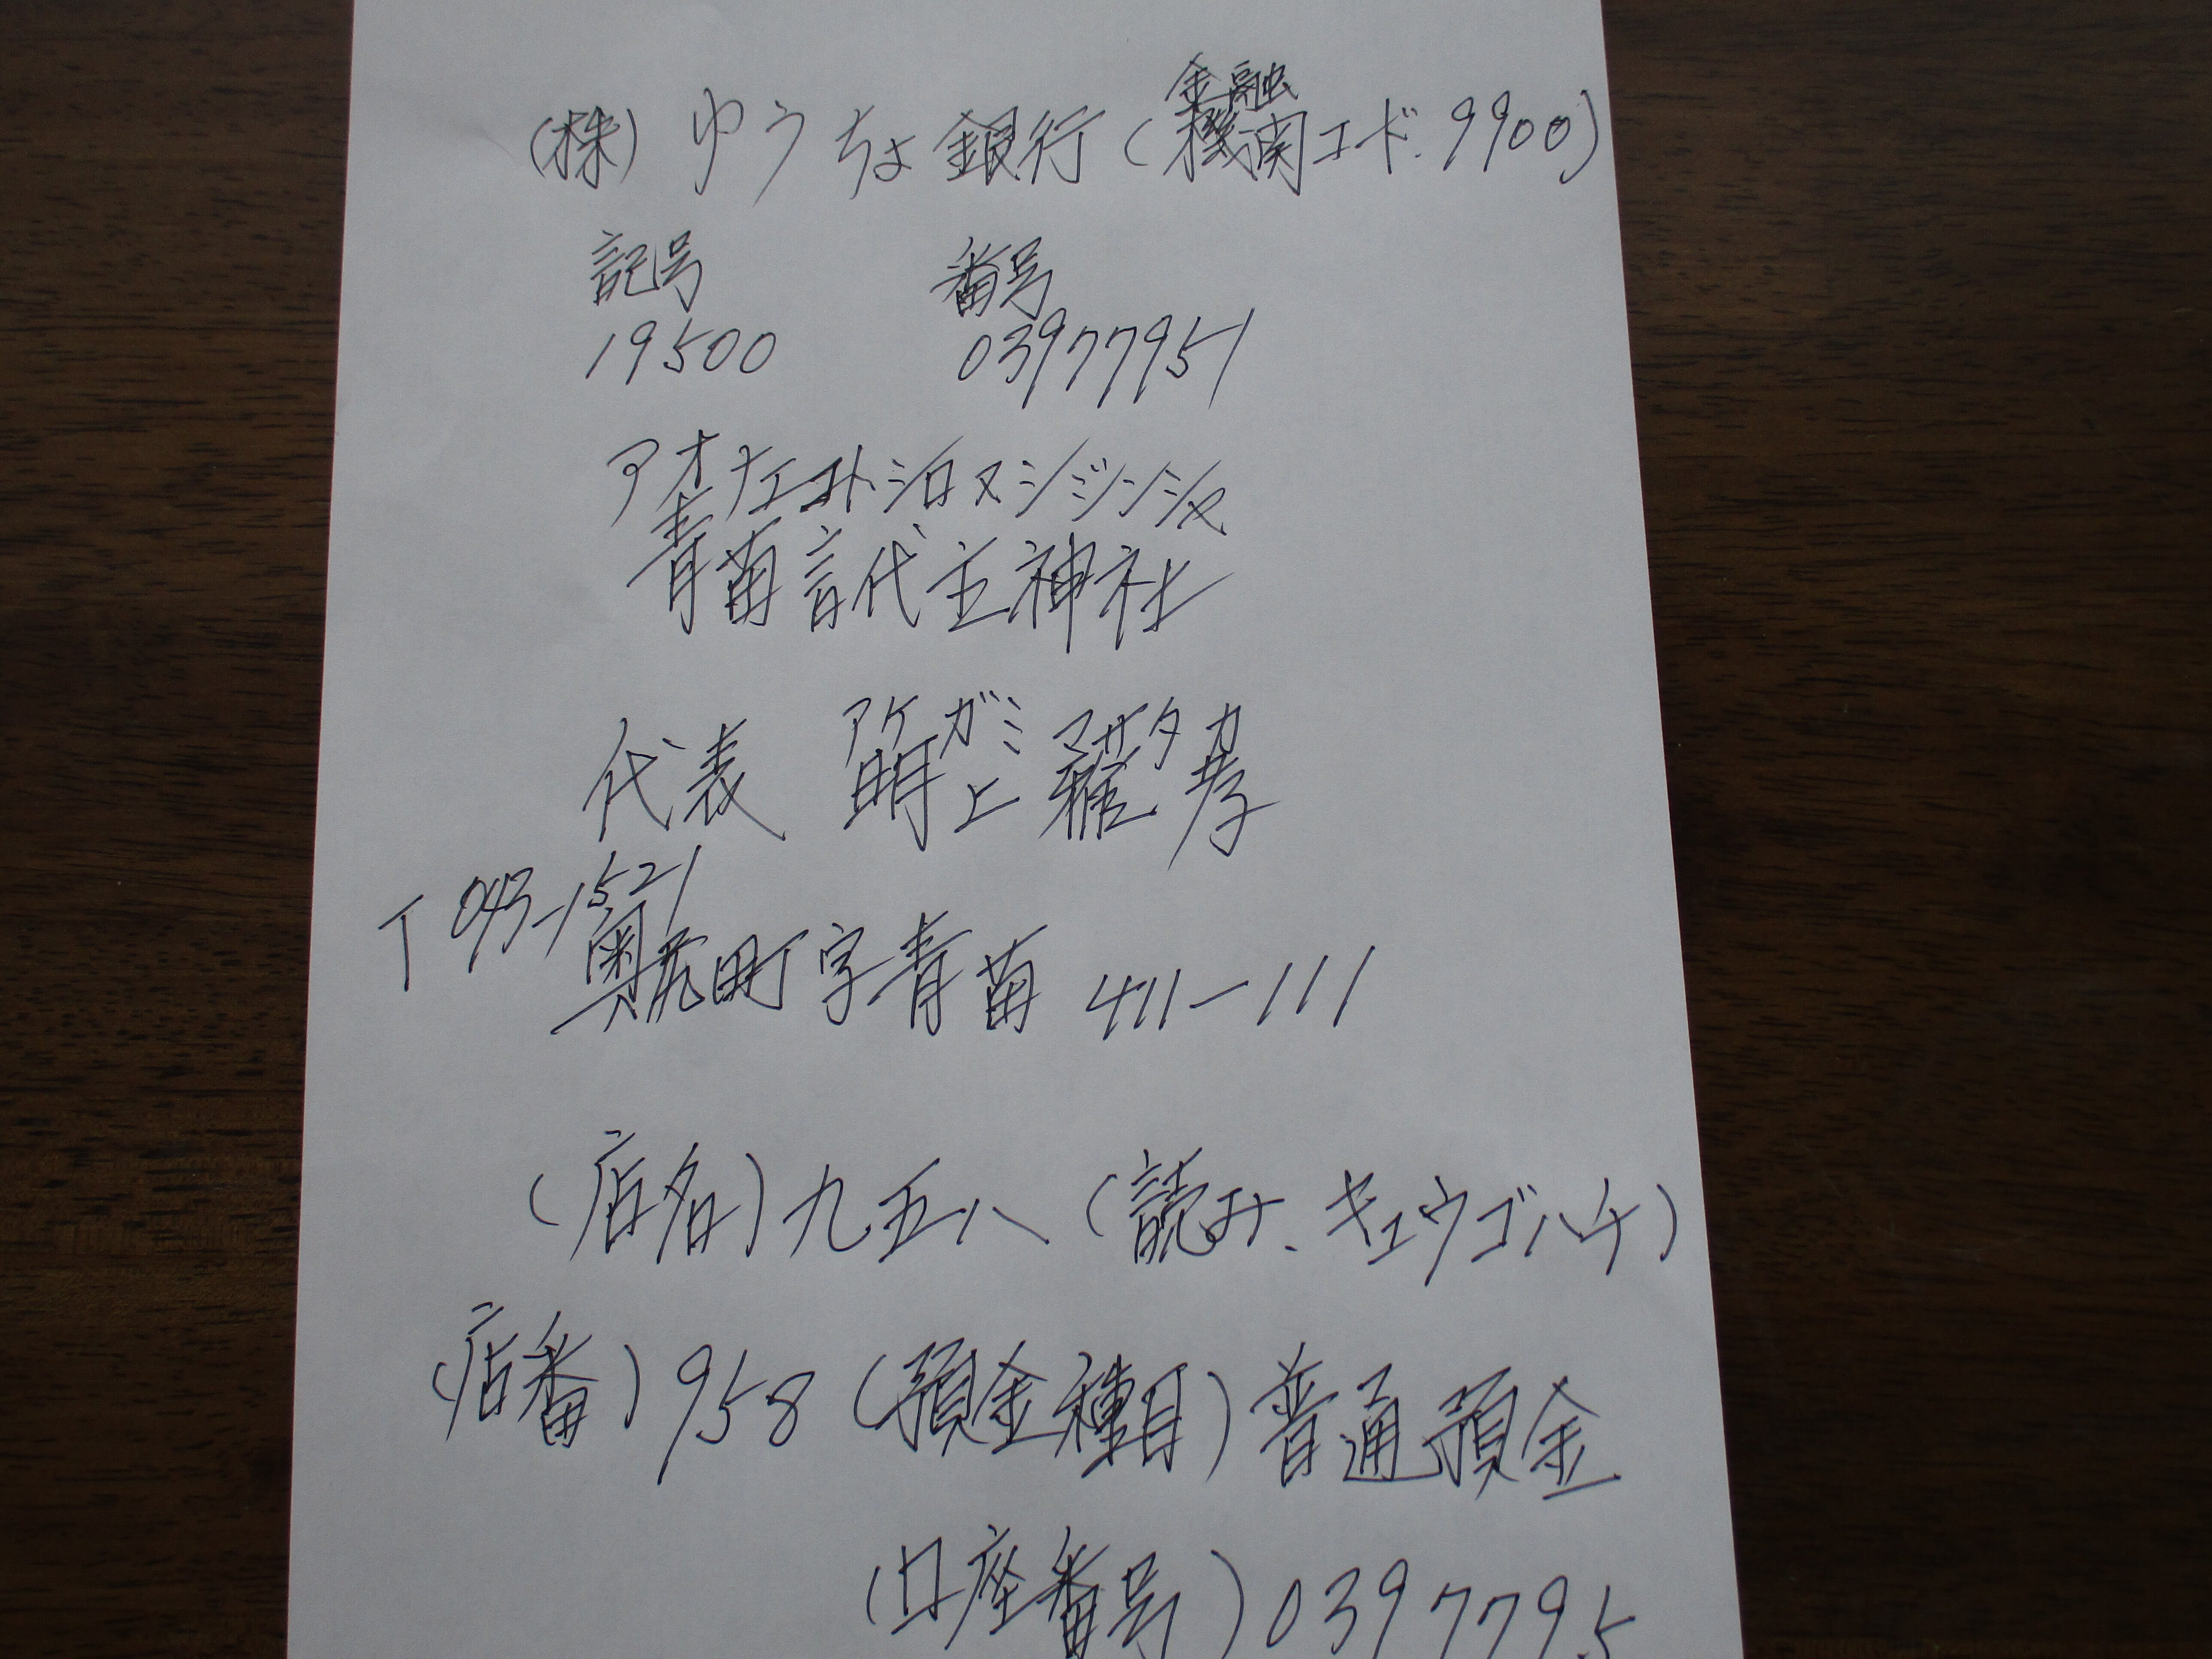 (株)ゆうちょ銀行(金融機関コード.9900)
記号 番号
19500 03977951
アオナエコトシロヌシジンジャ
青苗言代主神社
代表 明上雅孝
アケガミマサタカ
〒043-1521
奥尻町字青苗411-111
(店名)九五八(読み、キュウゴハチ)
(店番)958(預金種目)普通預金
(口座番号)0397795